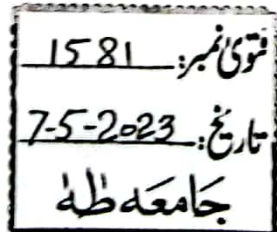 فتویٰ نمبر: 1581
تاریخ: 7-5-2023
جَامعَہ طٰہٰ